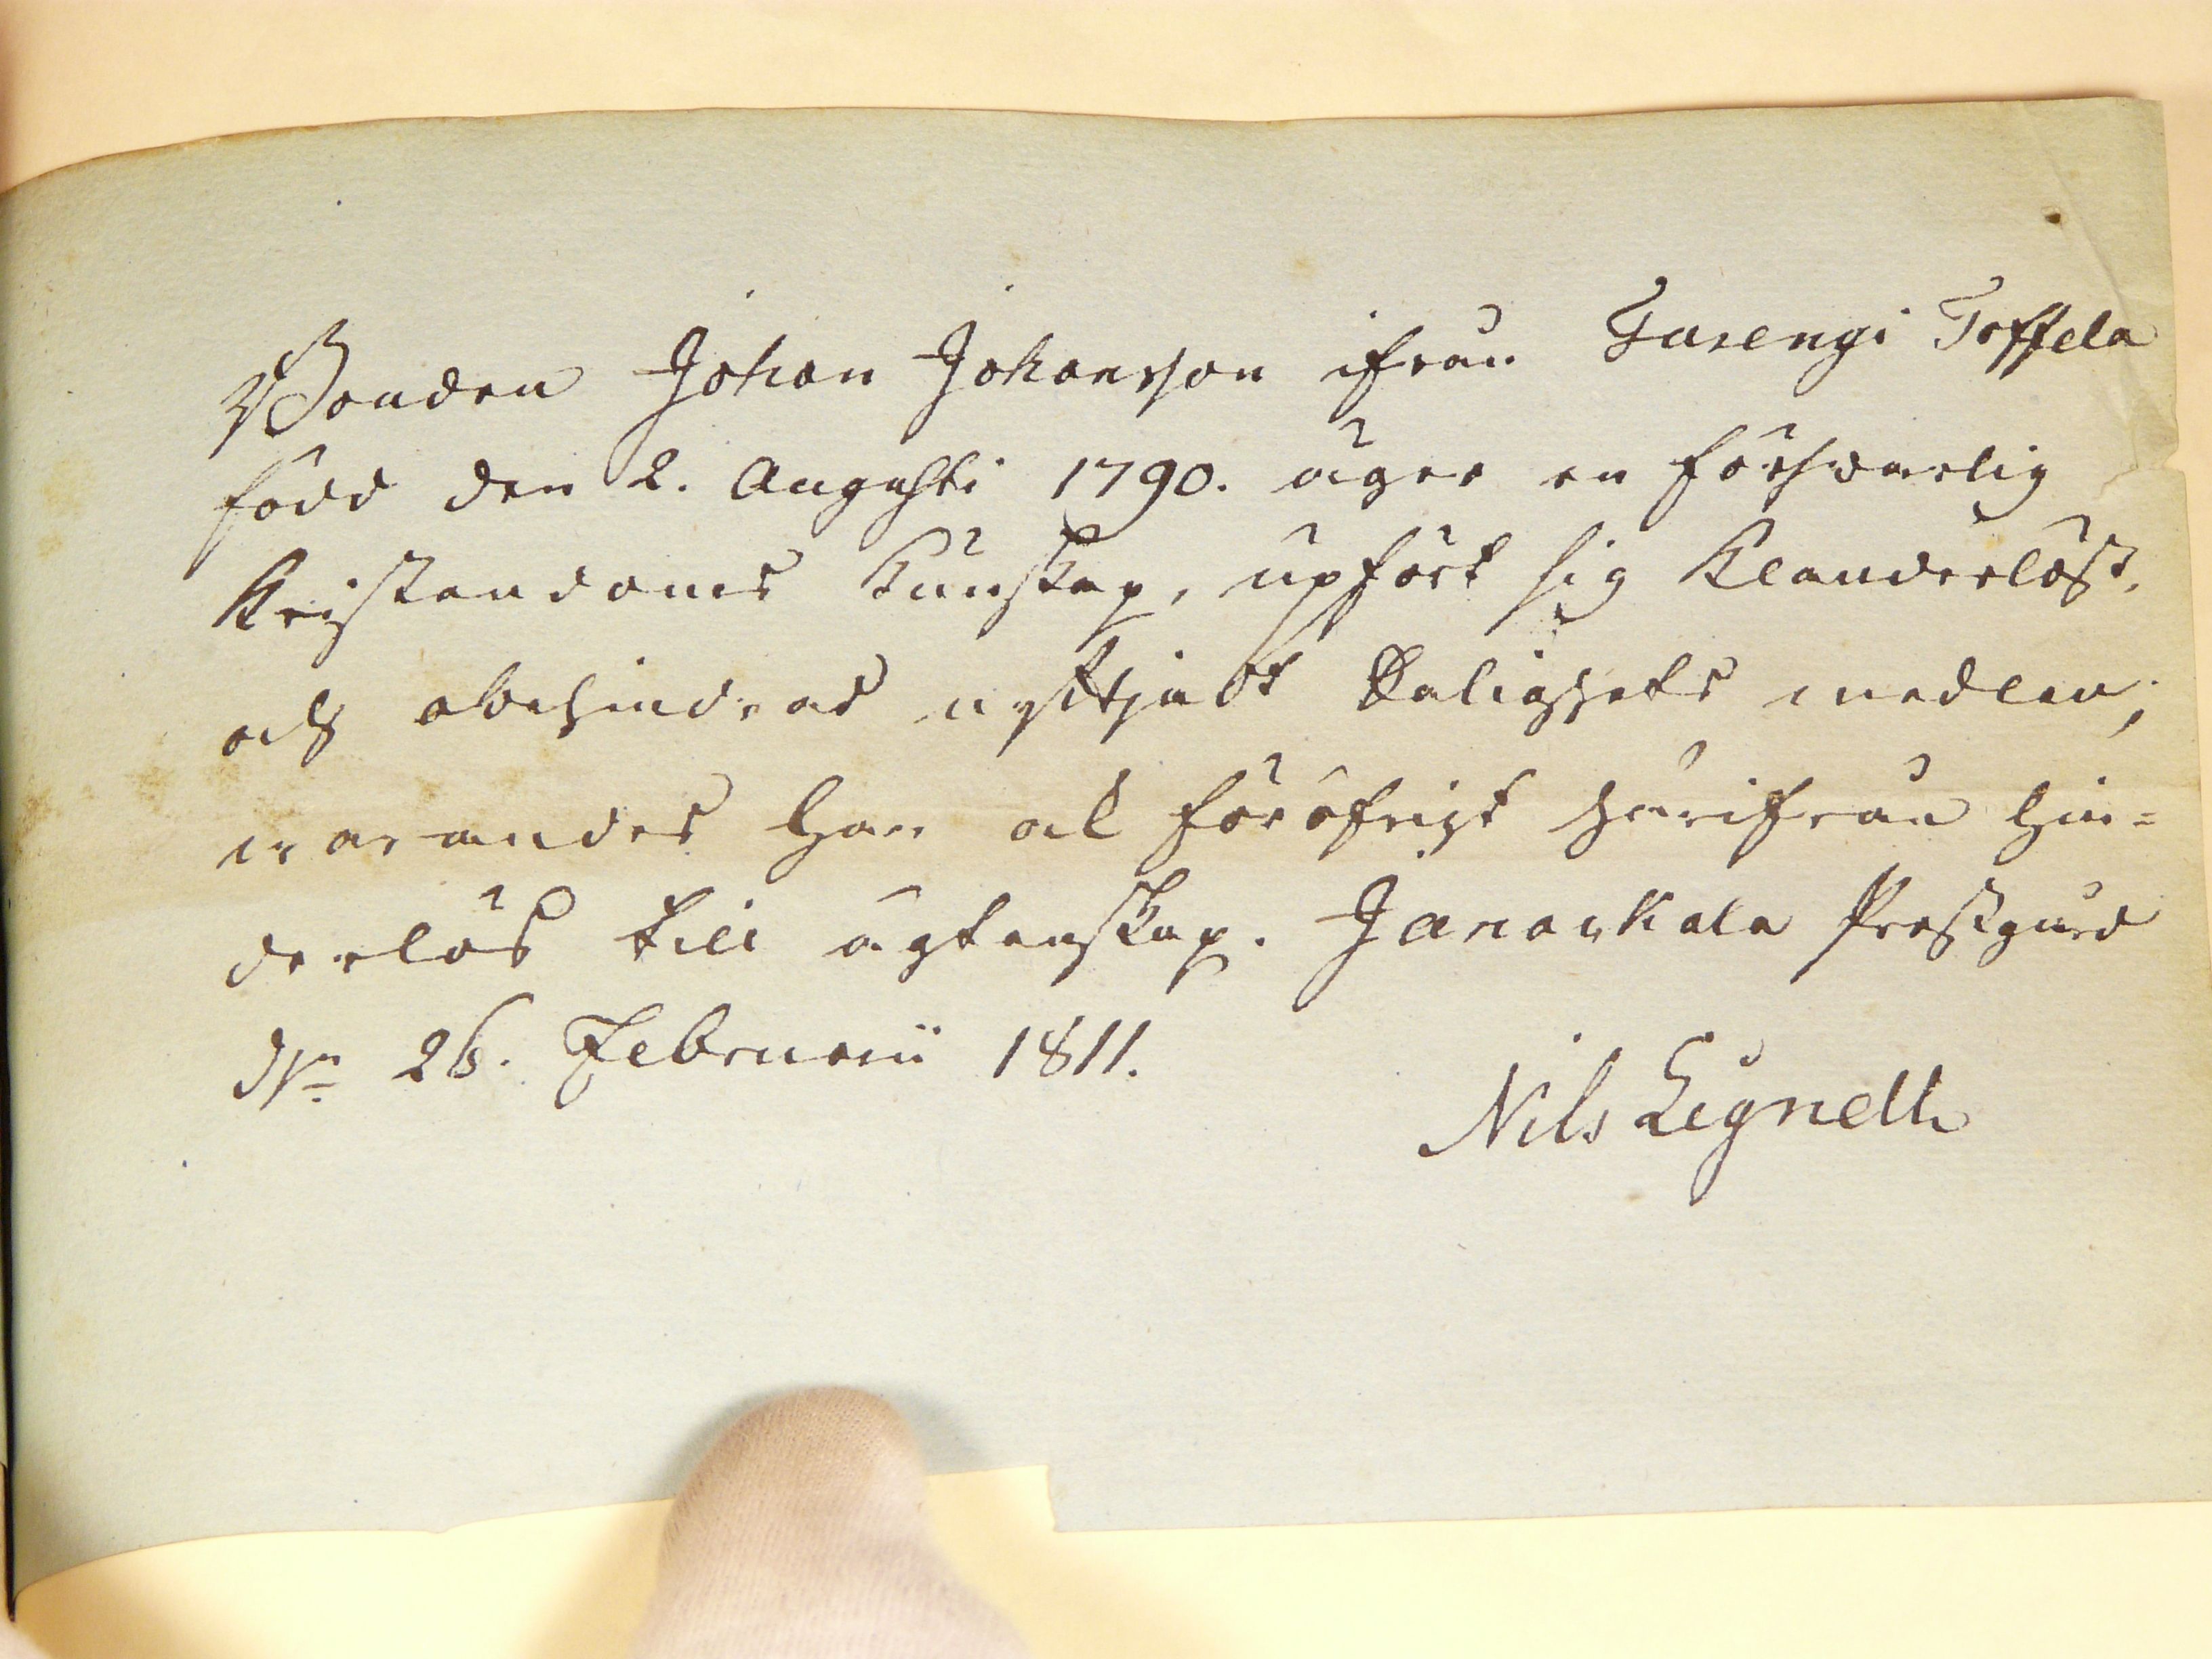 Bonden Johan Johansson ifrån Turengi Toffela
född den 2. Augusti 1790. äger en försvarlig
Kristendoms kunskap, upfört sig klanderlöst,
och obehindrad nyttjadt Salighets medlen;
warandes han ock föröfrigt härifrån hin=
derlös till ägtenskap. Janackala Prestgård
dn 26. Februarii 1811.
Nils Lignell